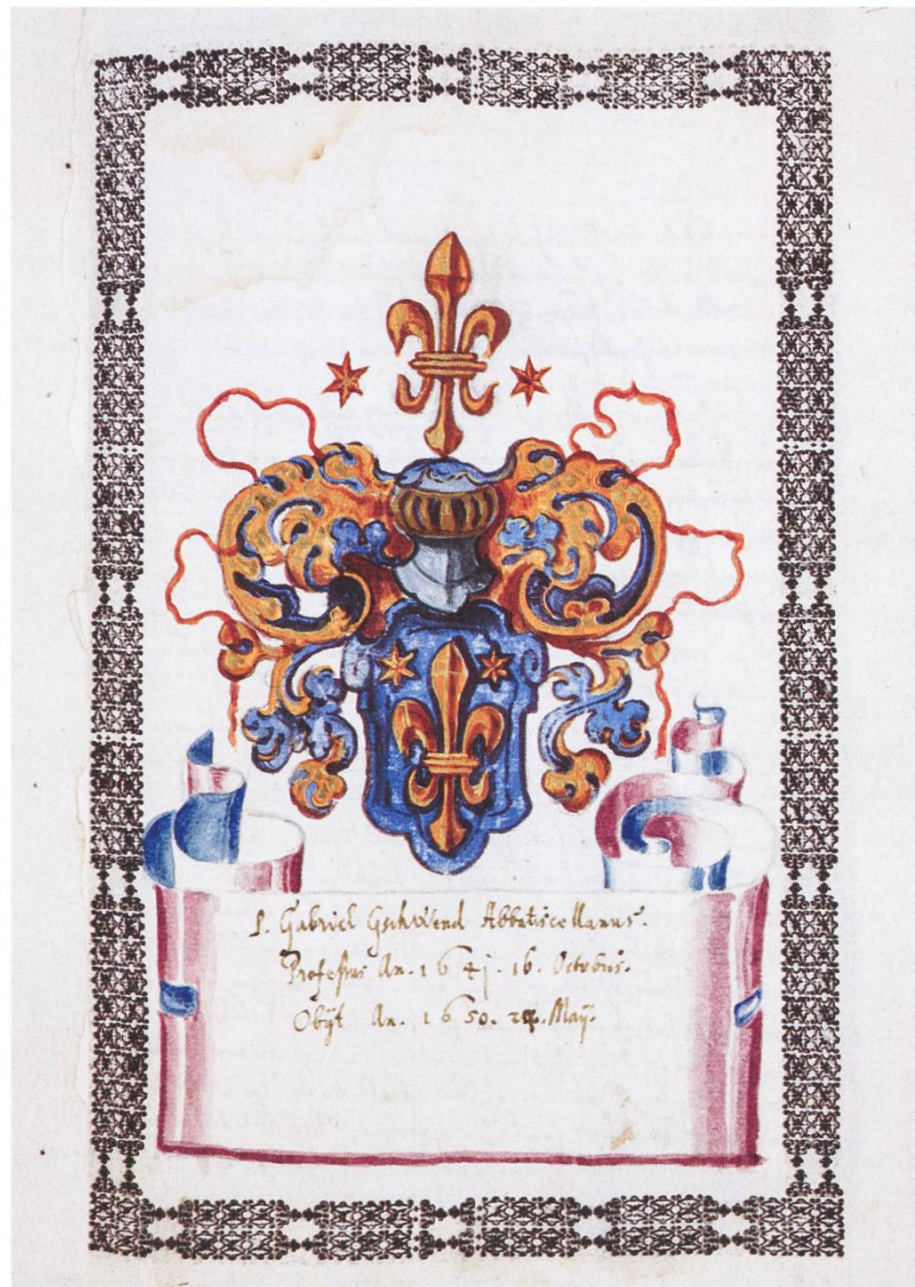 P. Gabriel Gschwend Abbatiscellanus.
Professus An. 1 6 4j. 16. Octobris.
Obÿt An. 1 6 50. Maÿ.